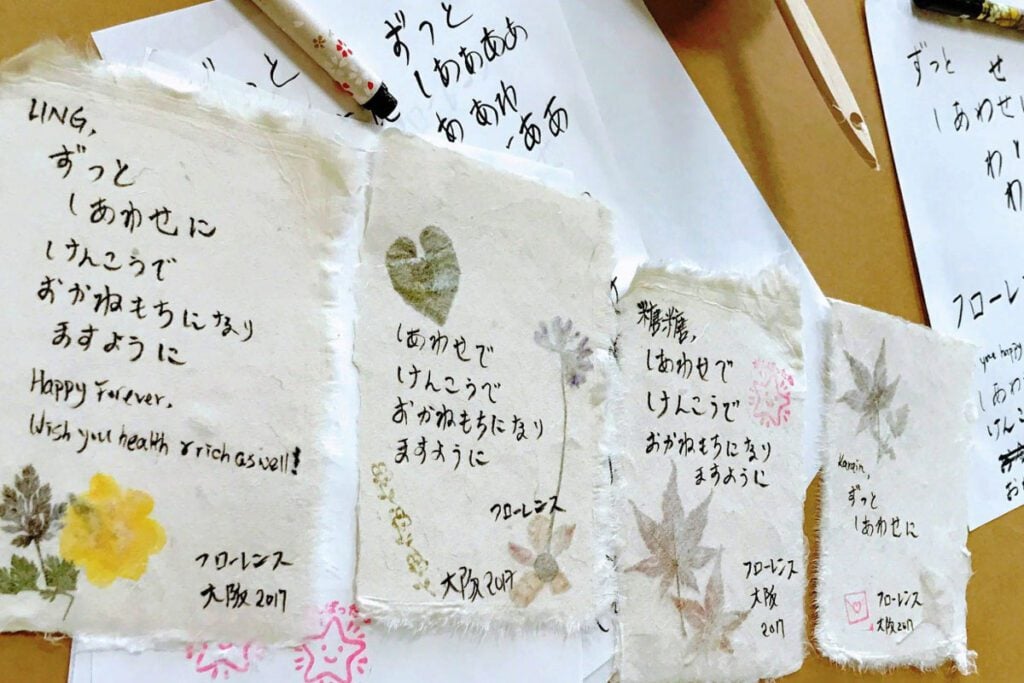 LING,
ずっと
しあわせに
けんこうで
おかねもちになり
ますように
Happy Forever,
Wish you health & rich as well!
フローレンス
大阪 2017
しあわせで
けんこうで
おかねもちになり
ますように
フローレンス
大阪 2017
糖糖,
しあわせで
けんこうで
おかねもちになり
ますように
フローレンス
大阪
2017
ずっと
しあわせに
フローレンス
大阪 2017
ずっと
ずっと
しああああ
ああわ
ああ
ずっと せ
しあわせ
わ
わ
フローレ
you happy
しあわ
けんこ